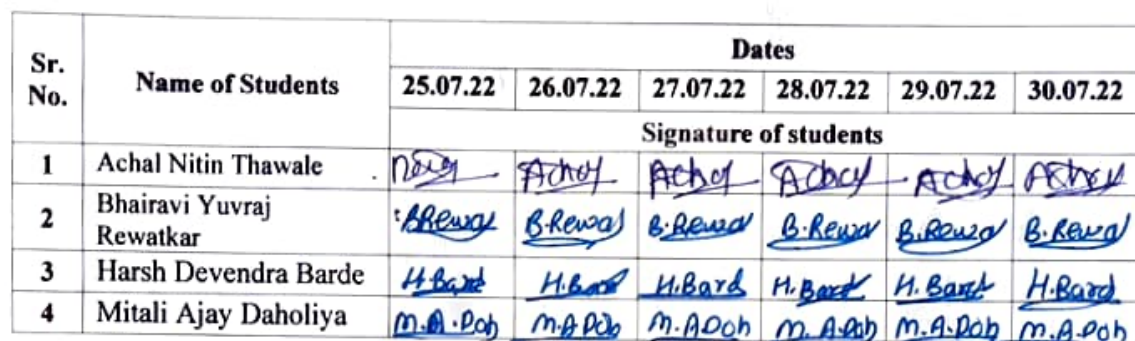 Sr. No. Name of Students Dates
25.07.22 26.07.22 27.07.22 28.07.22 29.07.22 30.07.22
Signature of students
1 Achal Nitin Thawale Achal Achal Achal Achal Achal
2 Bhairavi Yuvraj Rewatkar B.Rewa B.Rewa B.Rewa B.Rewa B.Rewa B.Rewa
3 Harsh Devendra Barde H.Bard H.Bard H.Bard H.Bard H.Bard H.Bard
4 Mitali Ajay Daholiya M.A.Doh M.A.Doh M.A.Doh M.A.Doh M.A.Doh M.A.Doh